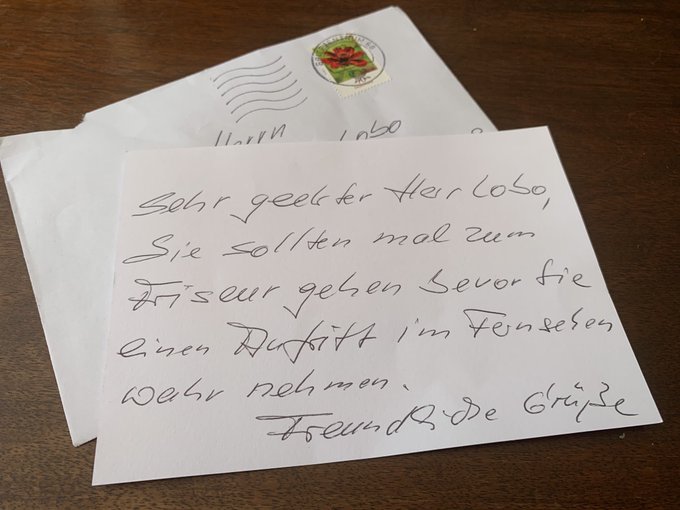 Herrn
Lobo
Sehr geehrter Herr Lobo,
Sie sollten mal zum
Friseur gehen Bevor Sie
einen Auftritt im Fernsehen
wahr nehmen.
Freundliche Grüße